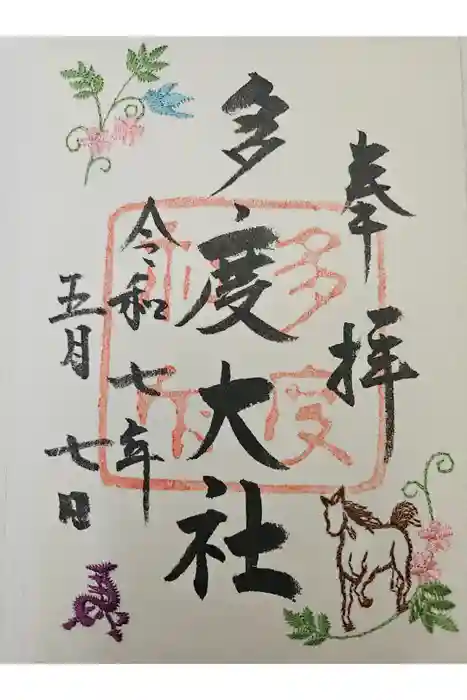 奉拝
多度大社
令和七年
五月七日
多度